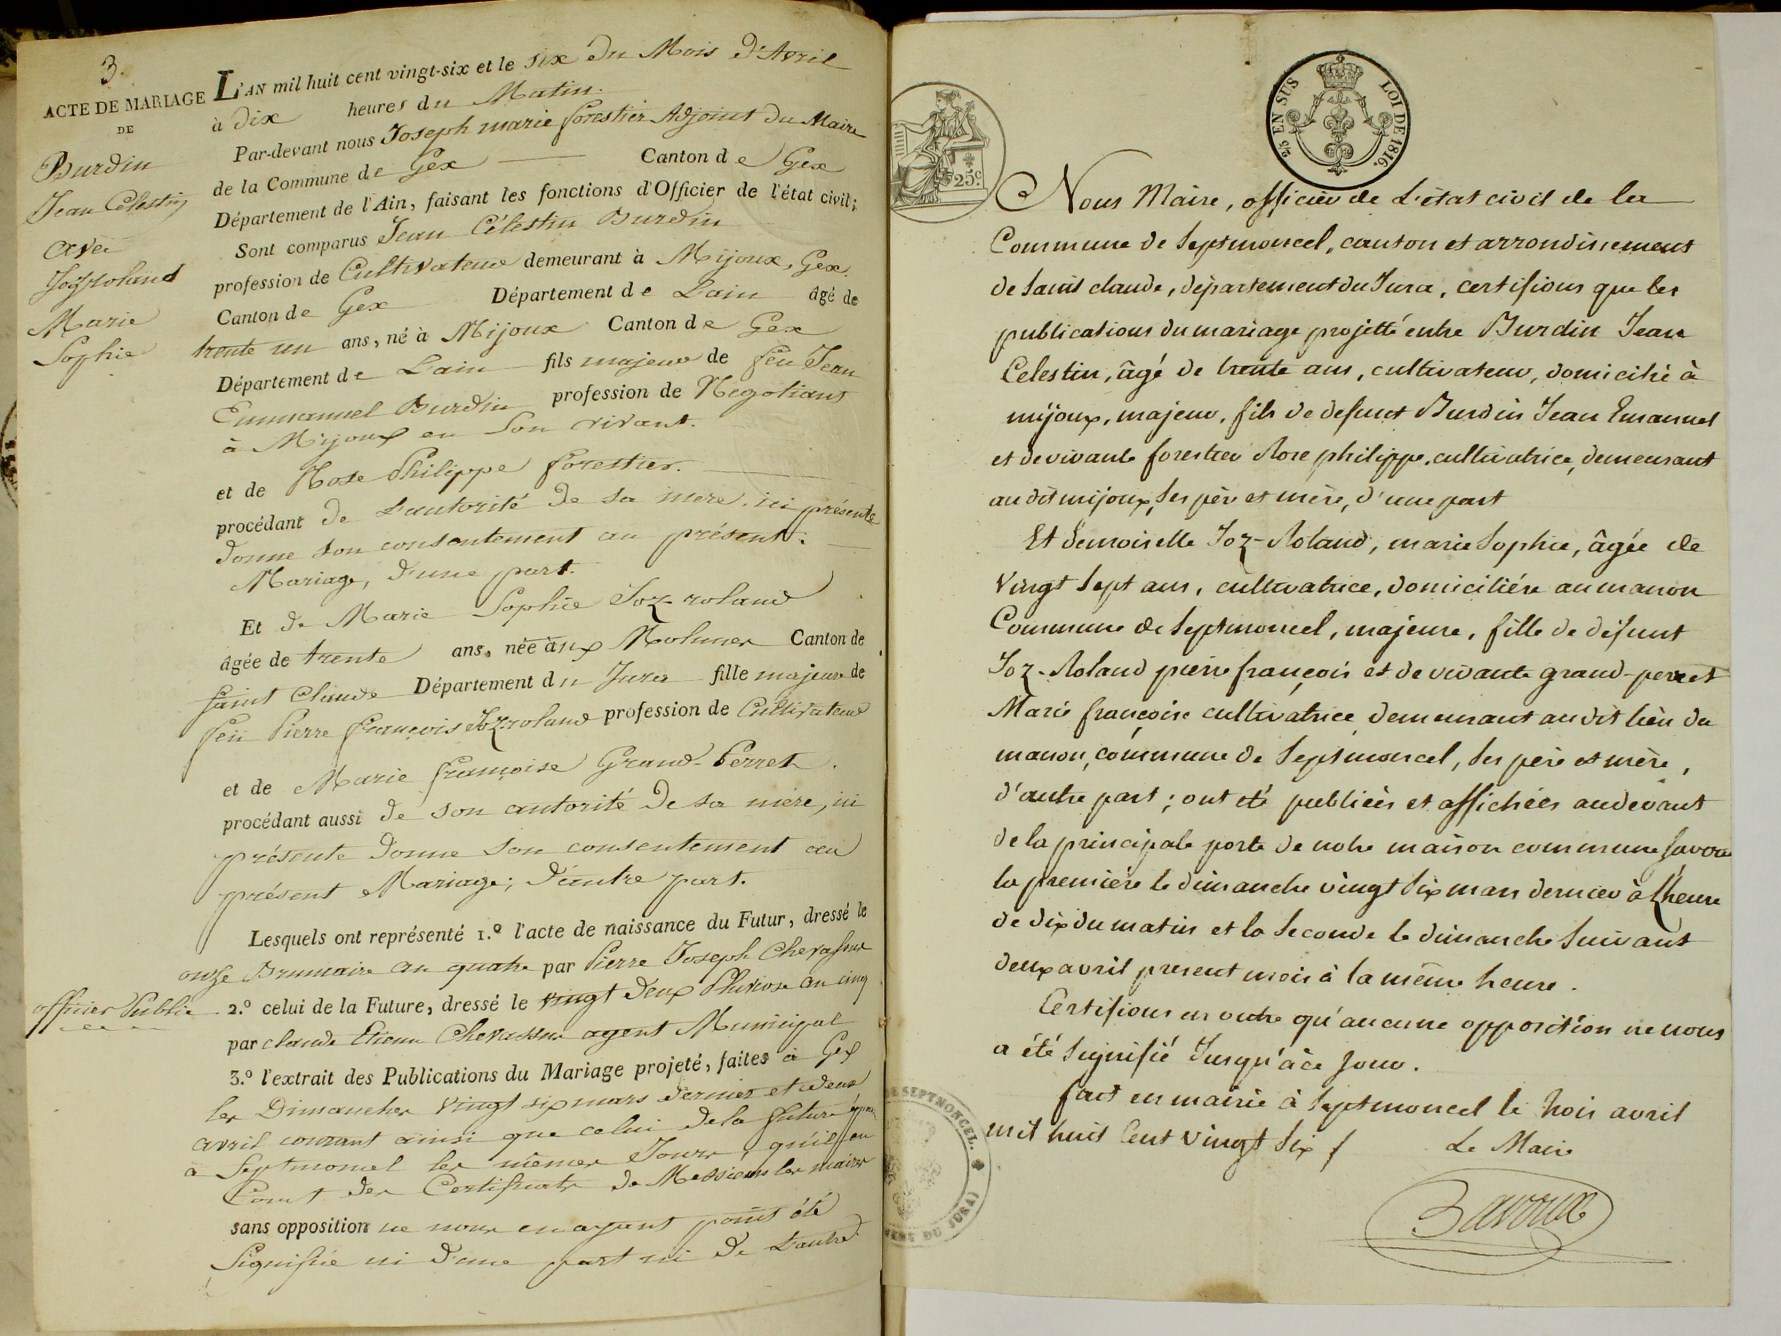 3.
ACTE DE MARIAGE
DE
Burdin
Jean Célestin
avec
Jozroland
Marie
Sophie
L'AN mil huit cent vingt-six et le six du Mois d'Avril
à dix heures du Matin.
Par-devant nous Joseph marie forestier Adjoint du Maire
de la Commune de Gex Canton de Gex
Département de l'Ain, faisant les fonctions d'Officier de l'état civil;
Sont comparus Jean Célestin Burdin
profession de Cultivateur demeurant à Mijoux, Gex
Canton de Gex Département de Lain âgé de
trente un ans, né à Mijoux Canton de Gex
Département de Lain fils majeur de feu Jean
Emmanuel Burdin profession de Negotiant
à Mijoux en Son vivant.
et de Rose Philippe forestier.
procédant de L'autorité de sa mere, ici présente
donne son consentement au présent
Mariage, d'une part.
Et de Marie Sophie Joz-roland
âgée de trente ans, née aux Molunes Canton de
saint Claude Département du Jura fille majeure de
feu Pierre françois Jozroland profession de Cultivateur
et de Marie françoise Grand-Perret.
procédant aussi de son autorité de sa mére, ici
présente donne son consentement au
présent Mariage; d'autre part.
Lesquels ont représenté 1.º l'acte de naissance du Futur, dressé le
onze Brumaire an quatre par Pierre Joseph Chevassus
officier Public
2.º celui de la Future, dressé le vingt deux Pluviose an cinq
par claude Etienne Chevassus agent Municipal
3.º l'extrait des Publications du Mariage projeté, faites à Gex
les Dimanches vingt six mars dernier et deux
avril courant ainsi que celui de la future épouse
à Septmoncel les mêmes Jours, qu'il en
Const des Certificats de Messieurs les maires
sans opposition ne nous en ayant point été
Signifiée ni d'une part ni de L'autre
25 EN SUS LOI DE 1816
25.c
Nous Maire, officier de L'état civil de la
Commune de Septmoncel, canton et arrondissement
de Saint claude, département du Jura, certifions que les
publications du mariage projetté entre Burdin Jean
Celestin, âgé de trente ans, cultivateur, domicilié à
mijoux, majeur, fils de defunt Burdin Jean Emanuel
et de vivante forestier Rose philippe, cultivatrice, demeurant
au dit mijoux, ses pèr et mère, d'une part
Et demoiselle Joz-Roland, marie Sophie, âgée de
vingt Sept ans, cultivatrice, domiciliée au manon
Commune de Septmoncel, majeure, fille de défunt
Joz-Roland pierre françois et de vivante grand-perret
Marie françoise cultivatrice demeurant audit lieu du
manon, commune de Septmoncel, ses père et mère,
d'autre part; ont été publiées et affichées audevant
de la principale porte de notre maison commune savoir
la première le dimanche vingt Six mars dernier à L'heure
de dix du matin et la Seconde le dimanche Suivant
deux avril present mois à la même heure.
Certifions en outre qu'aucune opposition ne nous
a été Signifié Jusqu'à ce Jour.
fait en mairie à Septmoncel le trois avril
mil huit Cent vingt Six
Le Maire
DE SEPTMONCEL
DU JURA